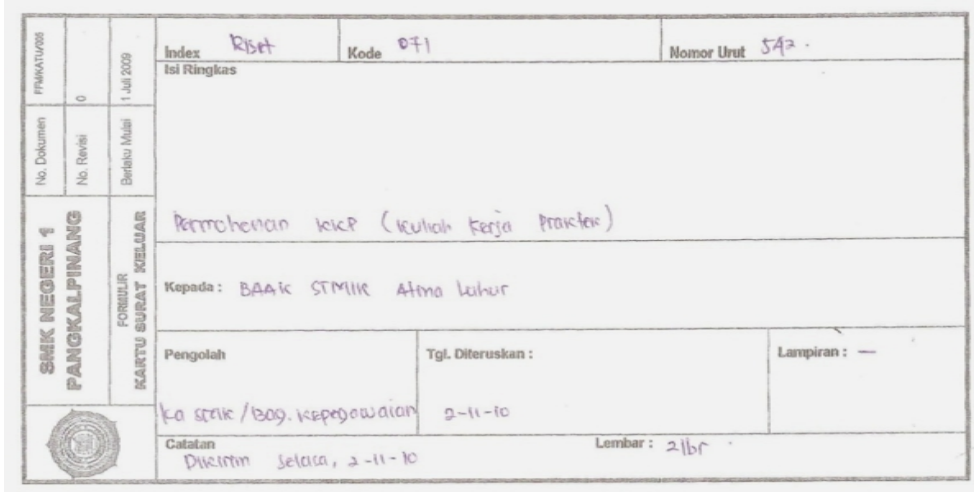 SMK NEGERI 1
PANGKALPINANG
FORMULIR
KARTU SURAT KELUAR
No. Dokumen FFM/KATU/005
No. Revisi 0
Berlaku Mulai 1 Juli 2009
Index Riset Kode 071 Nomor Urut 542.
Isi Ringkas
Permohonan KKP (Kuliah Kerja Praktek)
Kepada : BAAK STMIK Atma Luhur
Pengolah Tgl. Diteruskan : Lampiran : —
Ka /Bag. Kepegawaian 2-11-10
Catatan Lembar : 2 lbr
Dikirim Selasa, 2-11-10